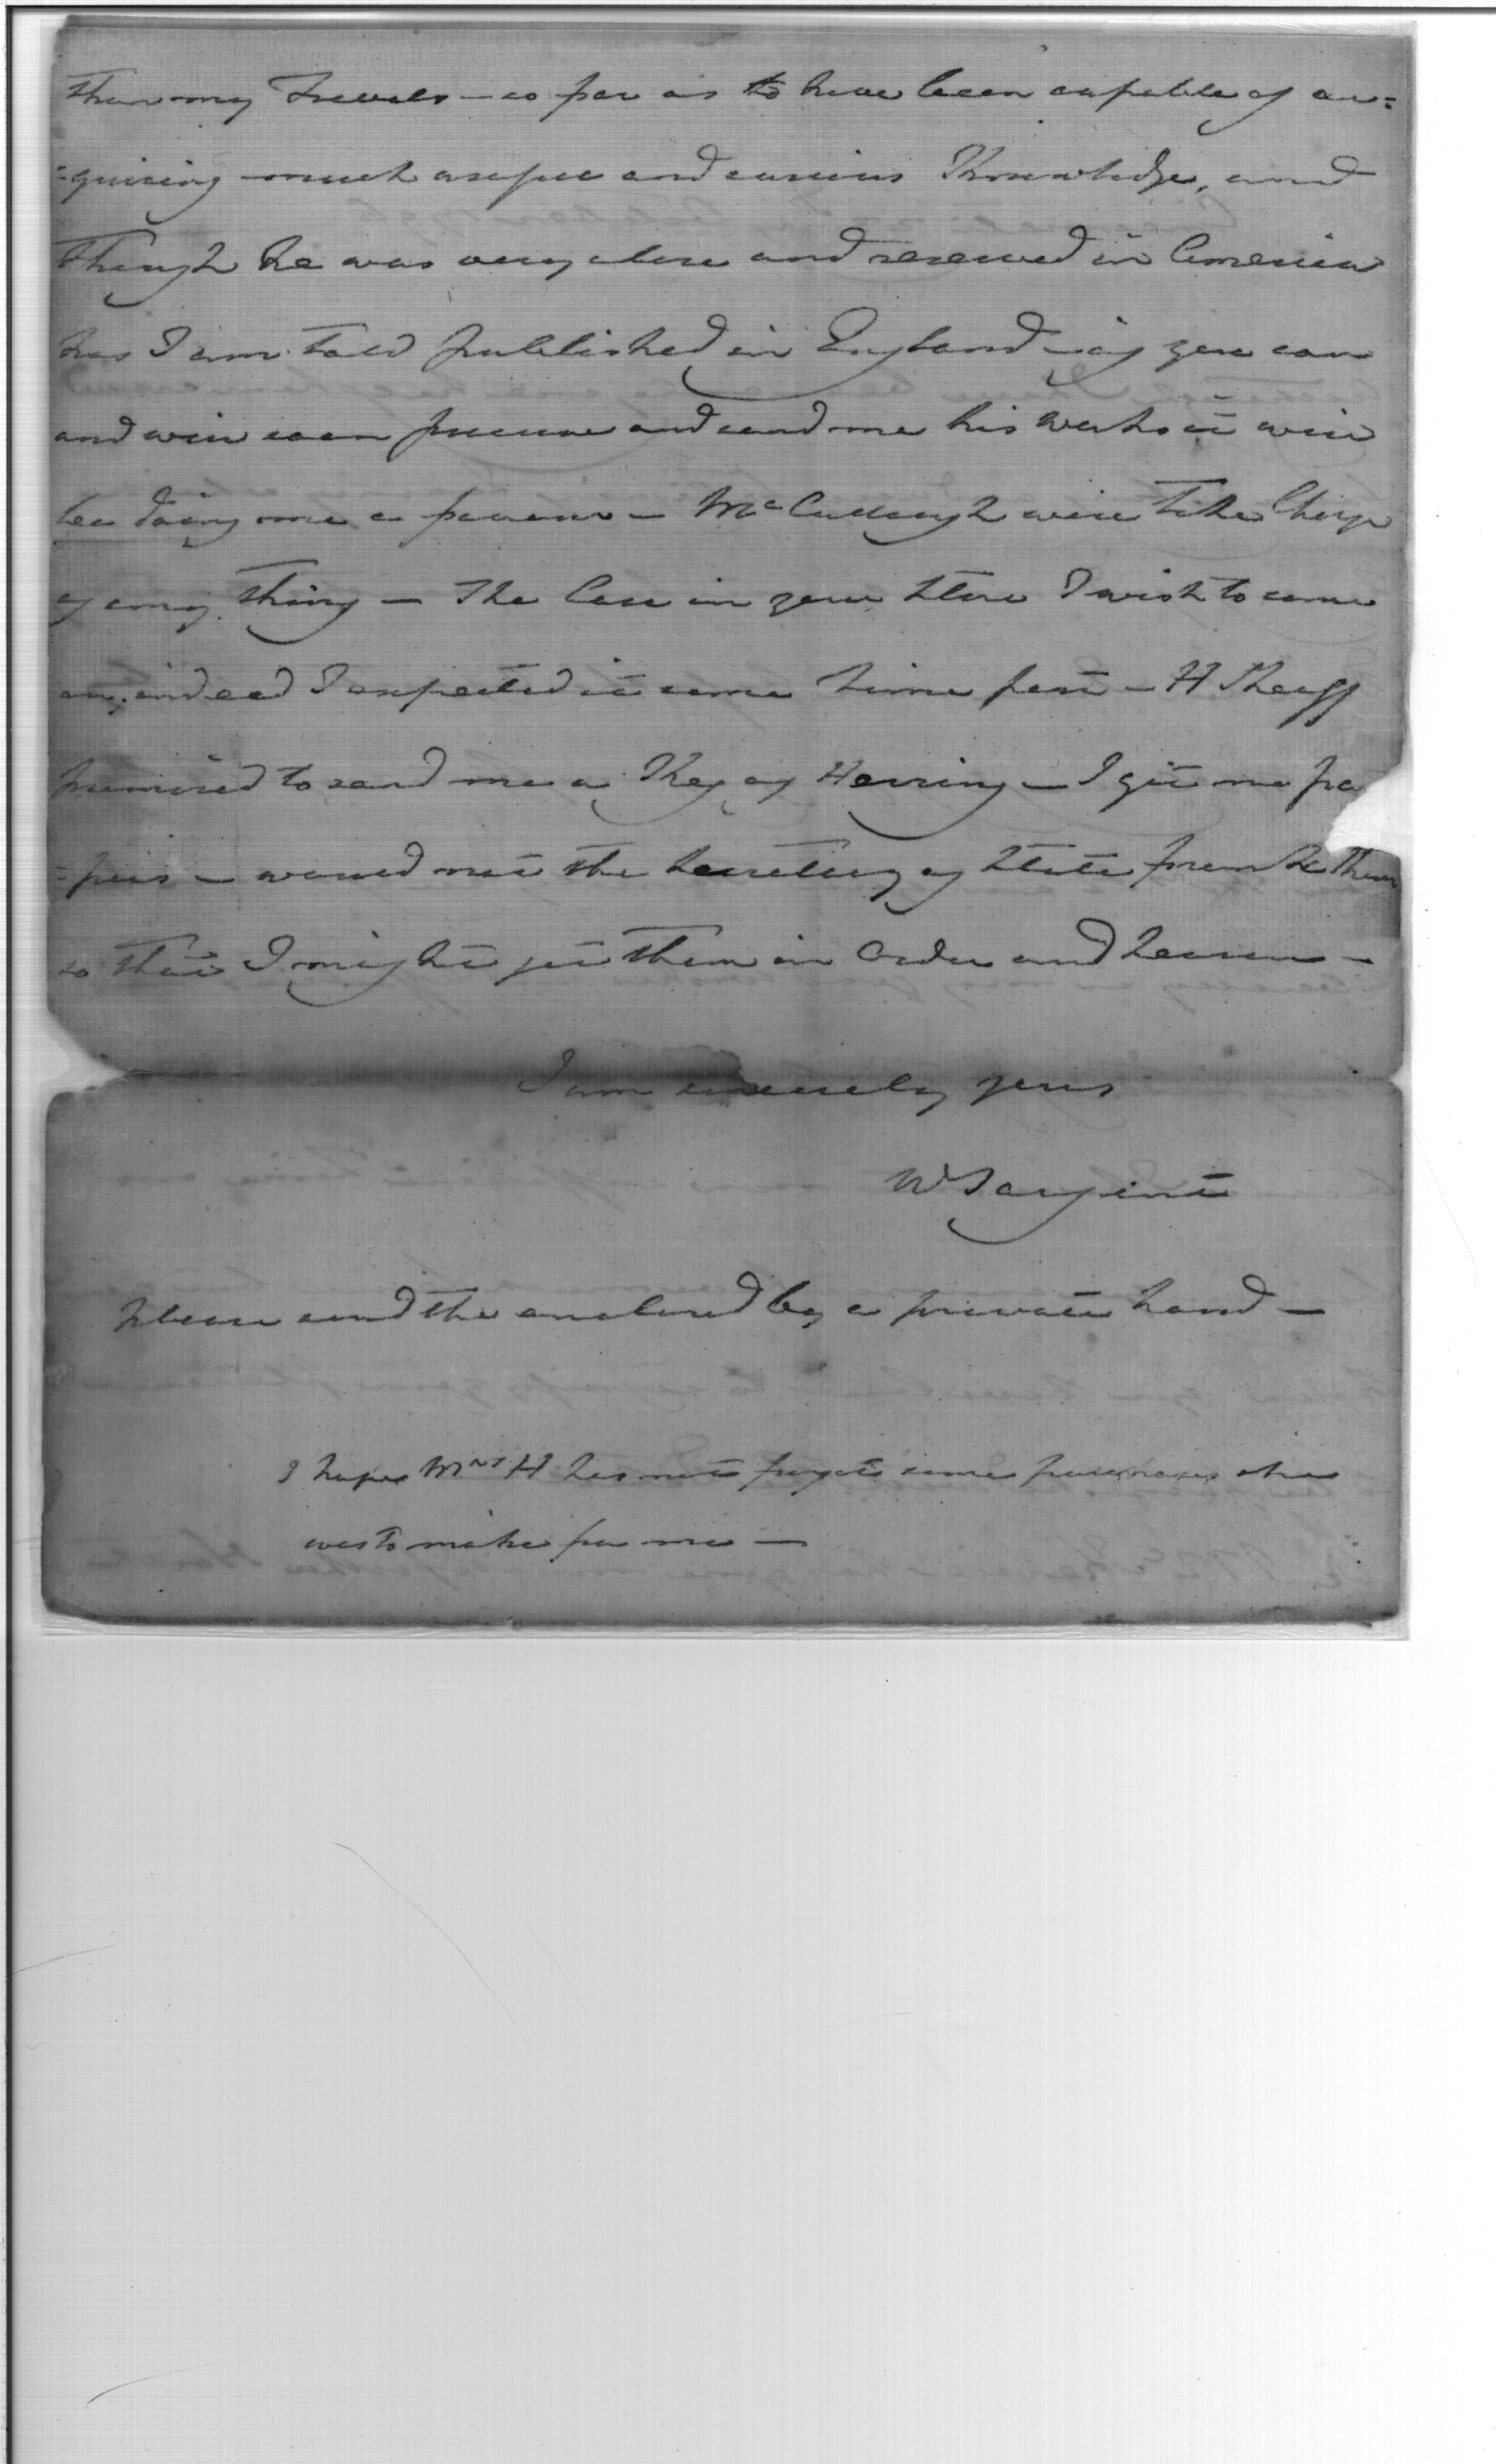 than my Travels – so far as to have been capable of ac=
=quiring much useful and curious Knowledge, and
though he was very close and reserved in America
has I am told published in England – if you can
and will soon procure and send me his works it will
be doing me a favour – McCullough will take Charge
of any thing – The Case in your Store I wish to come
on, indeed I expected it some time past – H Sheaff
promised to send me a Keg of Herring – I get no pa
=pers – would not the Secretary of State frank them
so that I might get them in Order and Season –
I am sincerely yours
W Sargent
Please send the enclosed by a private hand –
I hope Mrs H has not forgot some purchases she
was to make for me –